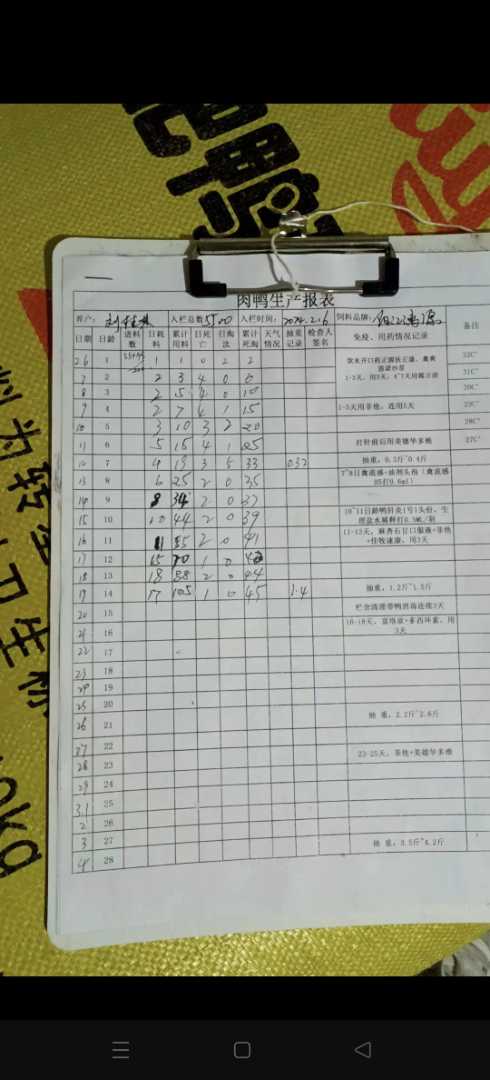 鸭
为
转
kg
肉鸭生产报表
养户: 入栏总数 5500 入栏时间: 2024.2.6 饲料品牌: 备注
日期 日龄 进料数 日耗料 累计用料 日死亡 日淘汰 累计死淘 天气情况 抽重记录 检查人签名 免疫、用药情况记录
2.6 1 1 1 0 2 2 32C°
7 2 2 3 4 0 6 1-3天 31C°
8 3 2 5 4 0 10 30C°
9 4 2 7 4 1 15 1-5天用菲他,连用5天 29C°
10 5 3 10 3 2 20 28C°
11 6 5 15 4 1 25 打针前后用美德华多维 27C°
12 7 4 19 3 5 33 0.32 抽重:0.3斤~0.4斤
13 8 6 25 2 0 35 7~8日禽流感+油剂头孢(禽流感H5打0.6ml)
14 9 8 34 2 0 37
15 10 10 44 2 0 39 10~11日龄鸭肝炎(号)1头份,生理盐水稀释打0.5ML/羽
16 11 11 55 2 0 41 11-13天,麻杏石甘口服液+菲他+佳牧速康,用3天
17 12 15 70 1 0 42
18 13 18 88 2 0 44
19 14 17 105 1 0 45 1.4 抽重:1.2斤~1.5斤
20 15 栏舍清理带鸭消毒连续3天
21 16 16-18天, +多西环素,用3天
22 17
23 18
24 19
25 20
26 21 抽 重:2.2斤~2.6斤
27 22
28 23 23-25天,菲他+美德华多维
29 24
3.1 25
2 26
3 27 抽 重:3.5斤~4.2斤
4 28